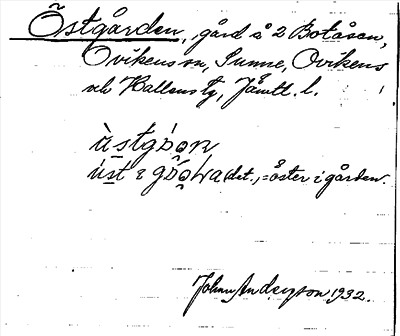 Östgården, gård å 2 Botåsen,
Ovikens sn, Sunne, Ovikens
och Hallens tg, Jämtl. l.
ùstgó̰ǫn
úst i gó̰ǫńa dat., = öster i gården.
John Anderson 1932.